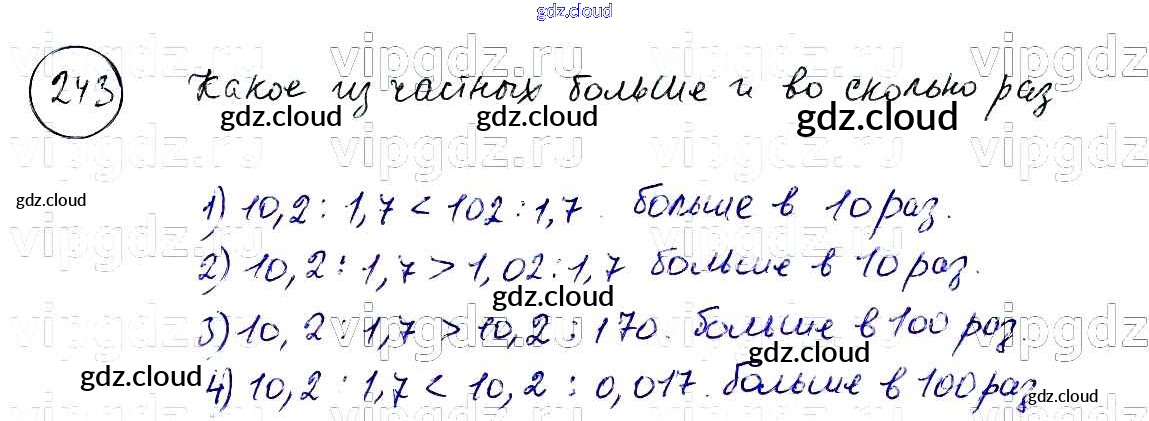 gdz.cloud
243 Какое из частных больше и во сколько раз
gdz.cloud gdz.cloud gdz.cloud
vipgdz.ru vipgdz.ru vipgdz.ru vipgdz.ru
gdz.cloud
1) 10,2 : 1,7 < 102 : 1,7. больше в 10 раз.
vipgdz.ru vipgdz.ru vipgdz.ru vipgdz.ru
2) 10,2 : 1,7 > 1,02 : 1,7 больше в 10 раз.
gdz.cloud
3) 10,2 : 1,7 > 10,2 : 170. больше в 100 раз.
vipgdz.ru vipgdz.ru vipgdz.ru vipgdz.ru
gdz.cloud gdz.cloud
4) 10,2 : 1,7 < 10,2 : 0,017. больше в 100 раз
gdz.cloud